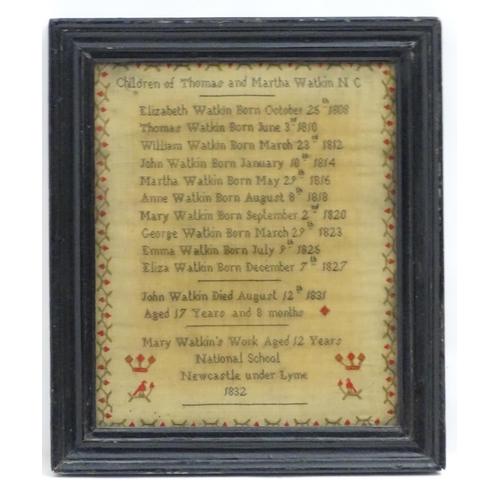 Children of Thomas and Martha Watkin N C
Elizabeth Watkin Born October 26th 1808
Thomas Watkin Born June 3rd 1810
William Watkin Born March 23rd 1812
John Watkin Born January 10th 1814
Martha Watkin Born May 29th 1816
Anne Watkin Born August 8th 1818
Mary Watkin Born September 2nd 1820
George Watkin Born March 29th 1823
Emma Watkin Born July 9th 1825
Eliza Watkin Born December 7th 1827
John Watkin Died August 12th 1831
Aged 17 Years and 8 months
Mary Watkin's Work Aged 12 Years
National School
Newcastle under Lyme
1832